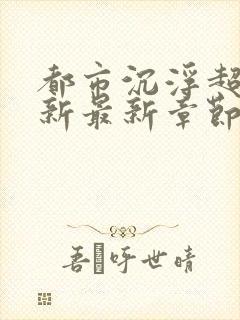 都市沉浮超
新最新章节
吾�呼世晴